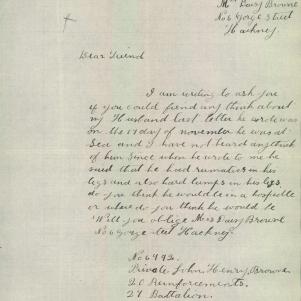 Mrs Daisy Browne
No 6 Gorge Street
Hackney
Dear Friend
I am writing to ask you
if you could fiend any think about
my Husband last letter he wrote was
on the 17 day of november he was at
Sea and I have not heard any think
of him since when he wrote to me he
said that he had rumatics in his
legs and also hard lumps in his legs
do you think he would be in a hospitle
or where do you think he would be
Will you oblige Mrs Daisy Browne
No 6 Gorge Hackney
No 6792.
Private John Henry Browne
20 Reinforcements.
27 Battalion.